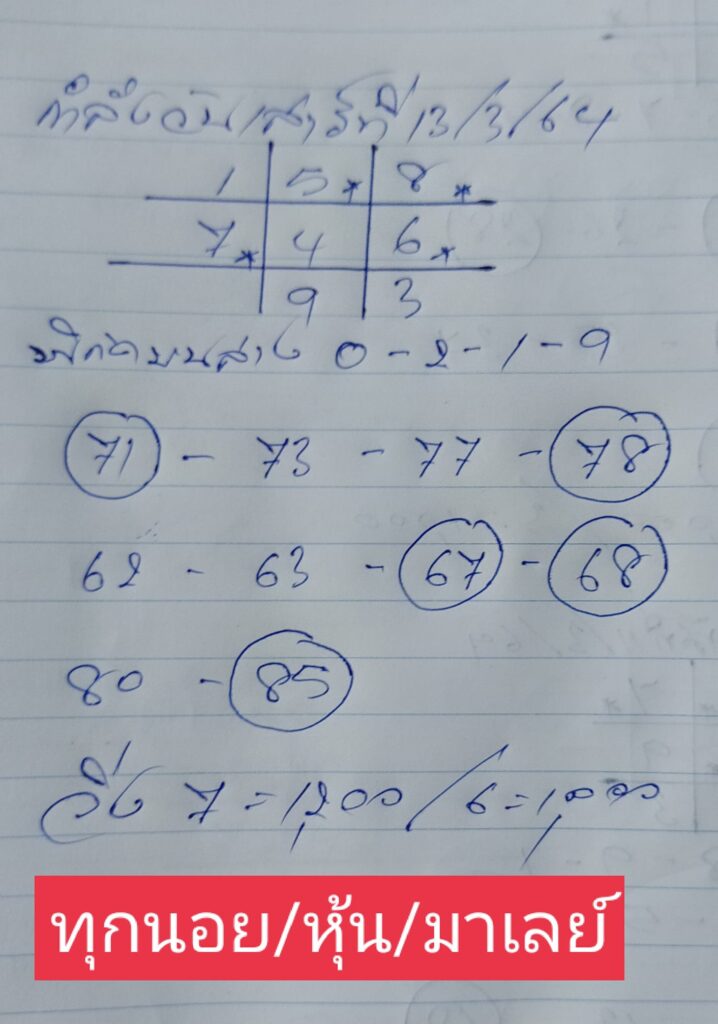 กำลังวันเสาร์ที่ 13/3/64
1 5* 8*
7* 4 6*
9 3
พิกัดบนล่าง 0-2-1-9
71 - 73 - 77 - 78
62 - 63 - 67 - 68
80 - 85
วิ่ง 7 = 1,200 / 6 = 1,000
ทุกนอย/หุ้น/มาเลย์